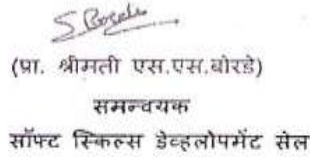 S Borde
(प्रा. श्रीमती एस.एस.बोरडे)
समन्वयक
सॉफ्ट स्किल्स डेव्हलोपमेंट सेल